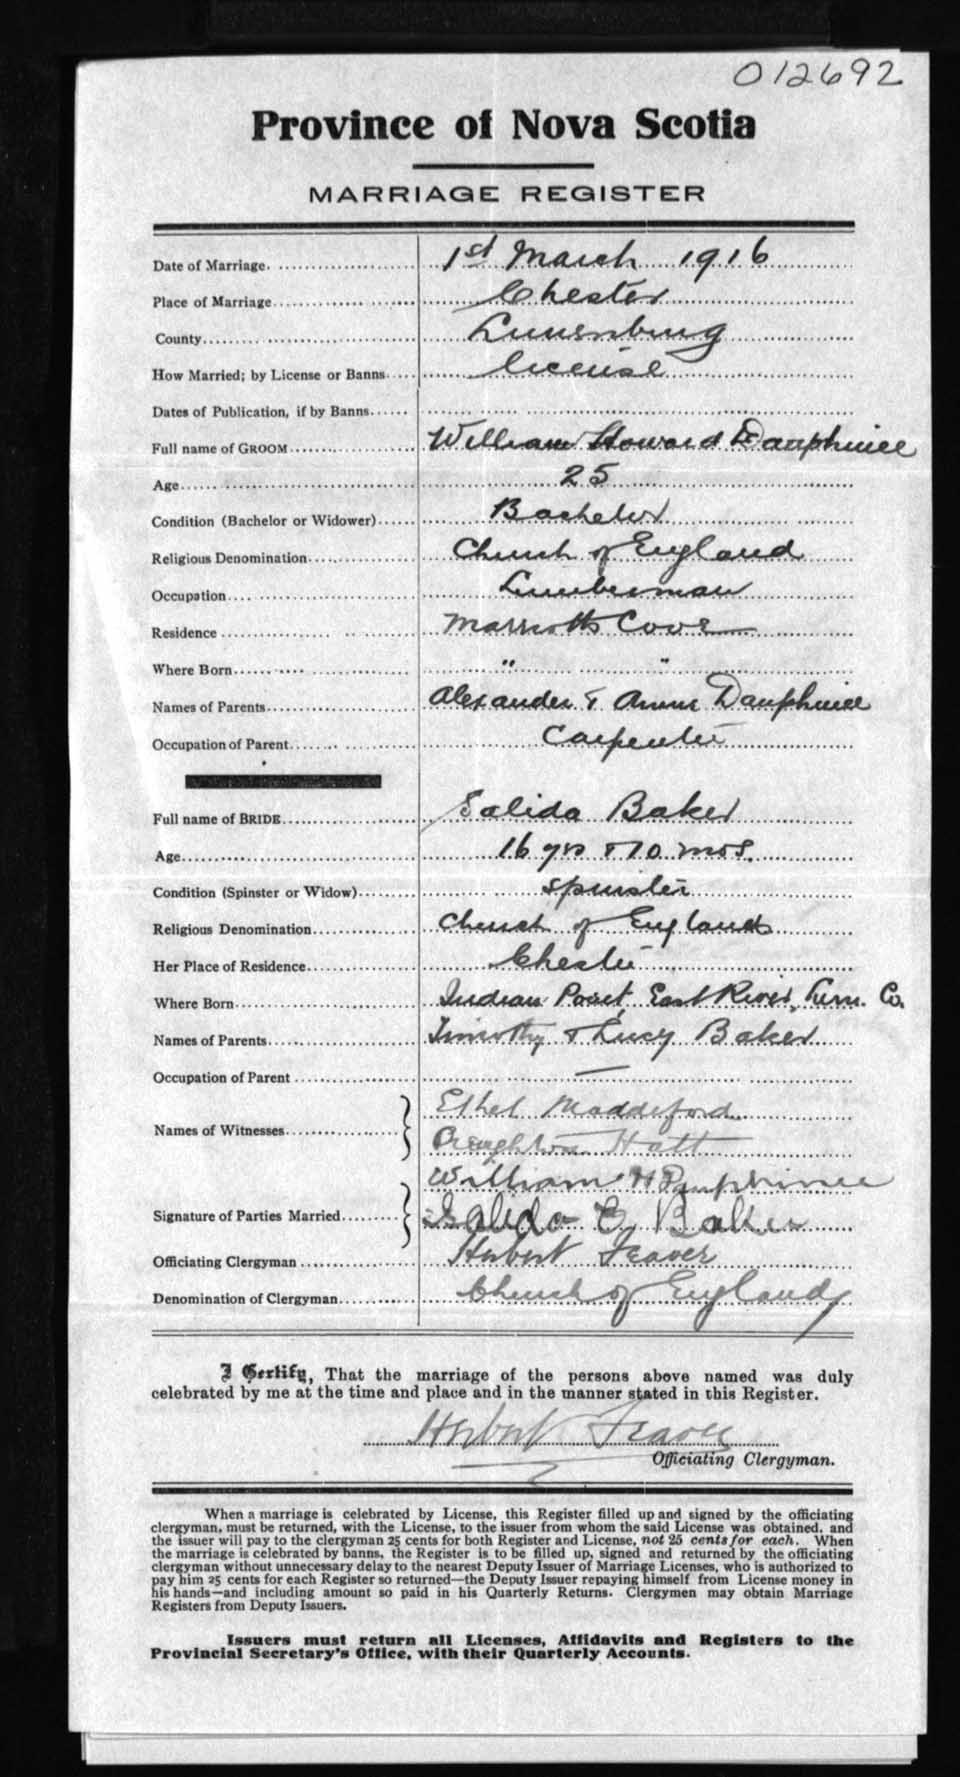 012692
Province of Nova Scotia
MARRIAGE REGISTER
Date of Marriage 1st March 1916
Place of Marriage Chester
County Lunenburg
How Married; by License or Banns license
Dates of Publication, if by Banns
Full name of GROOM William Howard Dauphinee
Age 25
Condition (Bachelor or Widower) Bachelor
Religious Denomination Church of England
Occupation Lumberman
Residence Marriotts Cove
Where Born " "
Names of Parents Alexander & Annie Dauphinee
Occupation of Parent Carpenter
Full name of BRIDE Salida Baker
Age 16 yrs & 10 mos.
Condition (Spinster or Widow) Spinster
Religious Denomination Church of England
Her Place of Residence Chester
Where Born Indian Point, East River, Lun. Co.
Names of Parents Timothy & Lucy Baker
Occupation of Parent —
Ethel Maddeford
Names of Witnesses
Creighton Hatt
William H Dauphinee
Signature of Parties Married Salida E. Baker
Officiating Clergyman Herbert Feaver
Denomination of Clergyman Church of England
I Certify, That the marriage of the persons above named was duly
celebrated by me at the time and place and in the manner stated in this Register.
Herbert Feaver
Officiating Clergyman.
When a marriage is celebrated by License, this Register filled up and signed by the officiating
clergyman, must be returned, with the License, to the issuer from whom the said License was obtained, and
the issuer will pay to the clergyman 25 cents for both Register and License, not 25 cents for each. When
the marriage is celebrated by banns, the Register is to be filled up, signed and returned by the officiating
clergyman without unnecessary delay to the nearest Deputy Issuer of Marriage Licenses, who is authorized to
pay him 25 cents for each Register so returned—the Deputy Issuer repaying himself from License money in
his hands—and including amount so paid in his Quarterly Returns. Clergymen may obtain Marriage
Registers from Deputy Issuers.
Issuers must return all Licenses, Affidavits and Registers to the
Provincial Secretary's Office, with their Quarterly Accounts.